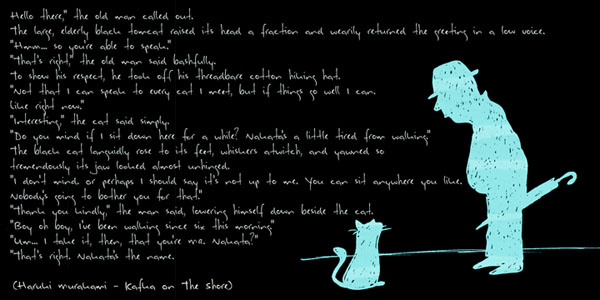 Hello there," the old man called out.
The large, elderly black tomcat raised its head a fraction and wearily returned the greeting in a low voice.
"Hmm... so you're able to speak."
"That's right," the old man said bashfully.
To show his respect, he took off his threadbare cotton hiking hat.
"Not that I can speak to every cat I meet, but if things go well I can.
Like right now."
"Interesting," the cat said simply.
"Do you mind if I sit down here for a while? Nakata's a little tired from walking"
The black cat languidly rose to its feet, whiskers atwitch, and yawned so
tremendously its jaw looked almost unhinged.
"I don't mind. or perhaps I should say it's not up to me. You can sit anywhere you like.
Nobody's going to bother you for that."
"Thank you kindly," the man said, lowering himself down beside the cat.
"Boy oh boy, I've been walking since six this morning"
"Um... I take it, then, that you're mr. Nakata?"
"That's right. Nakata's the name.
(Haruki murakami - Kafka on the shore)